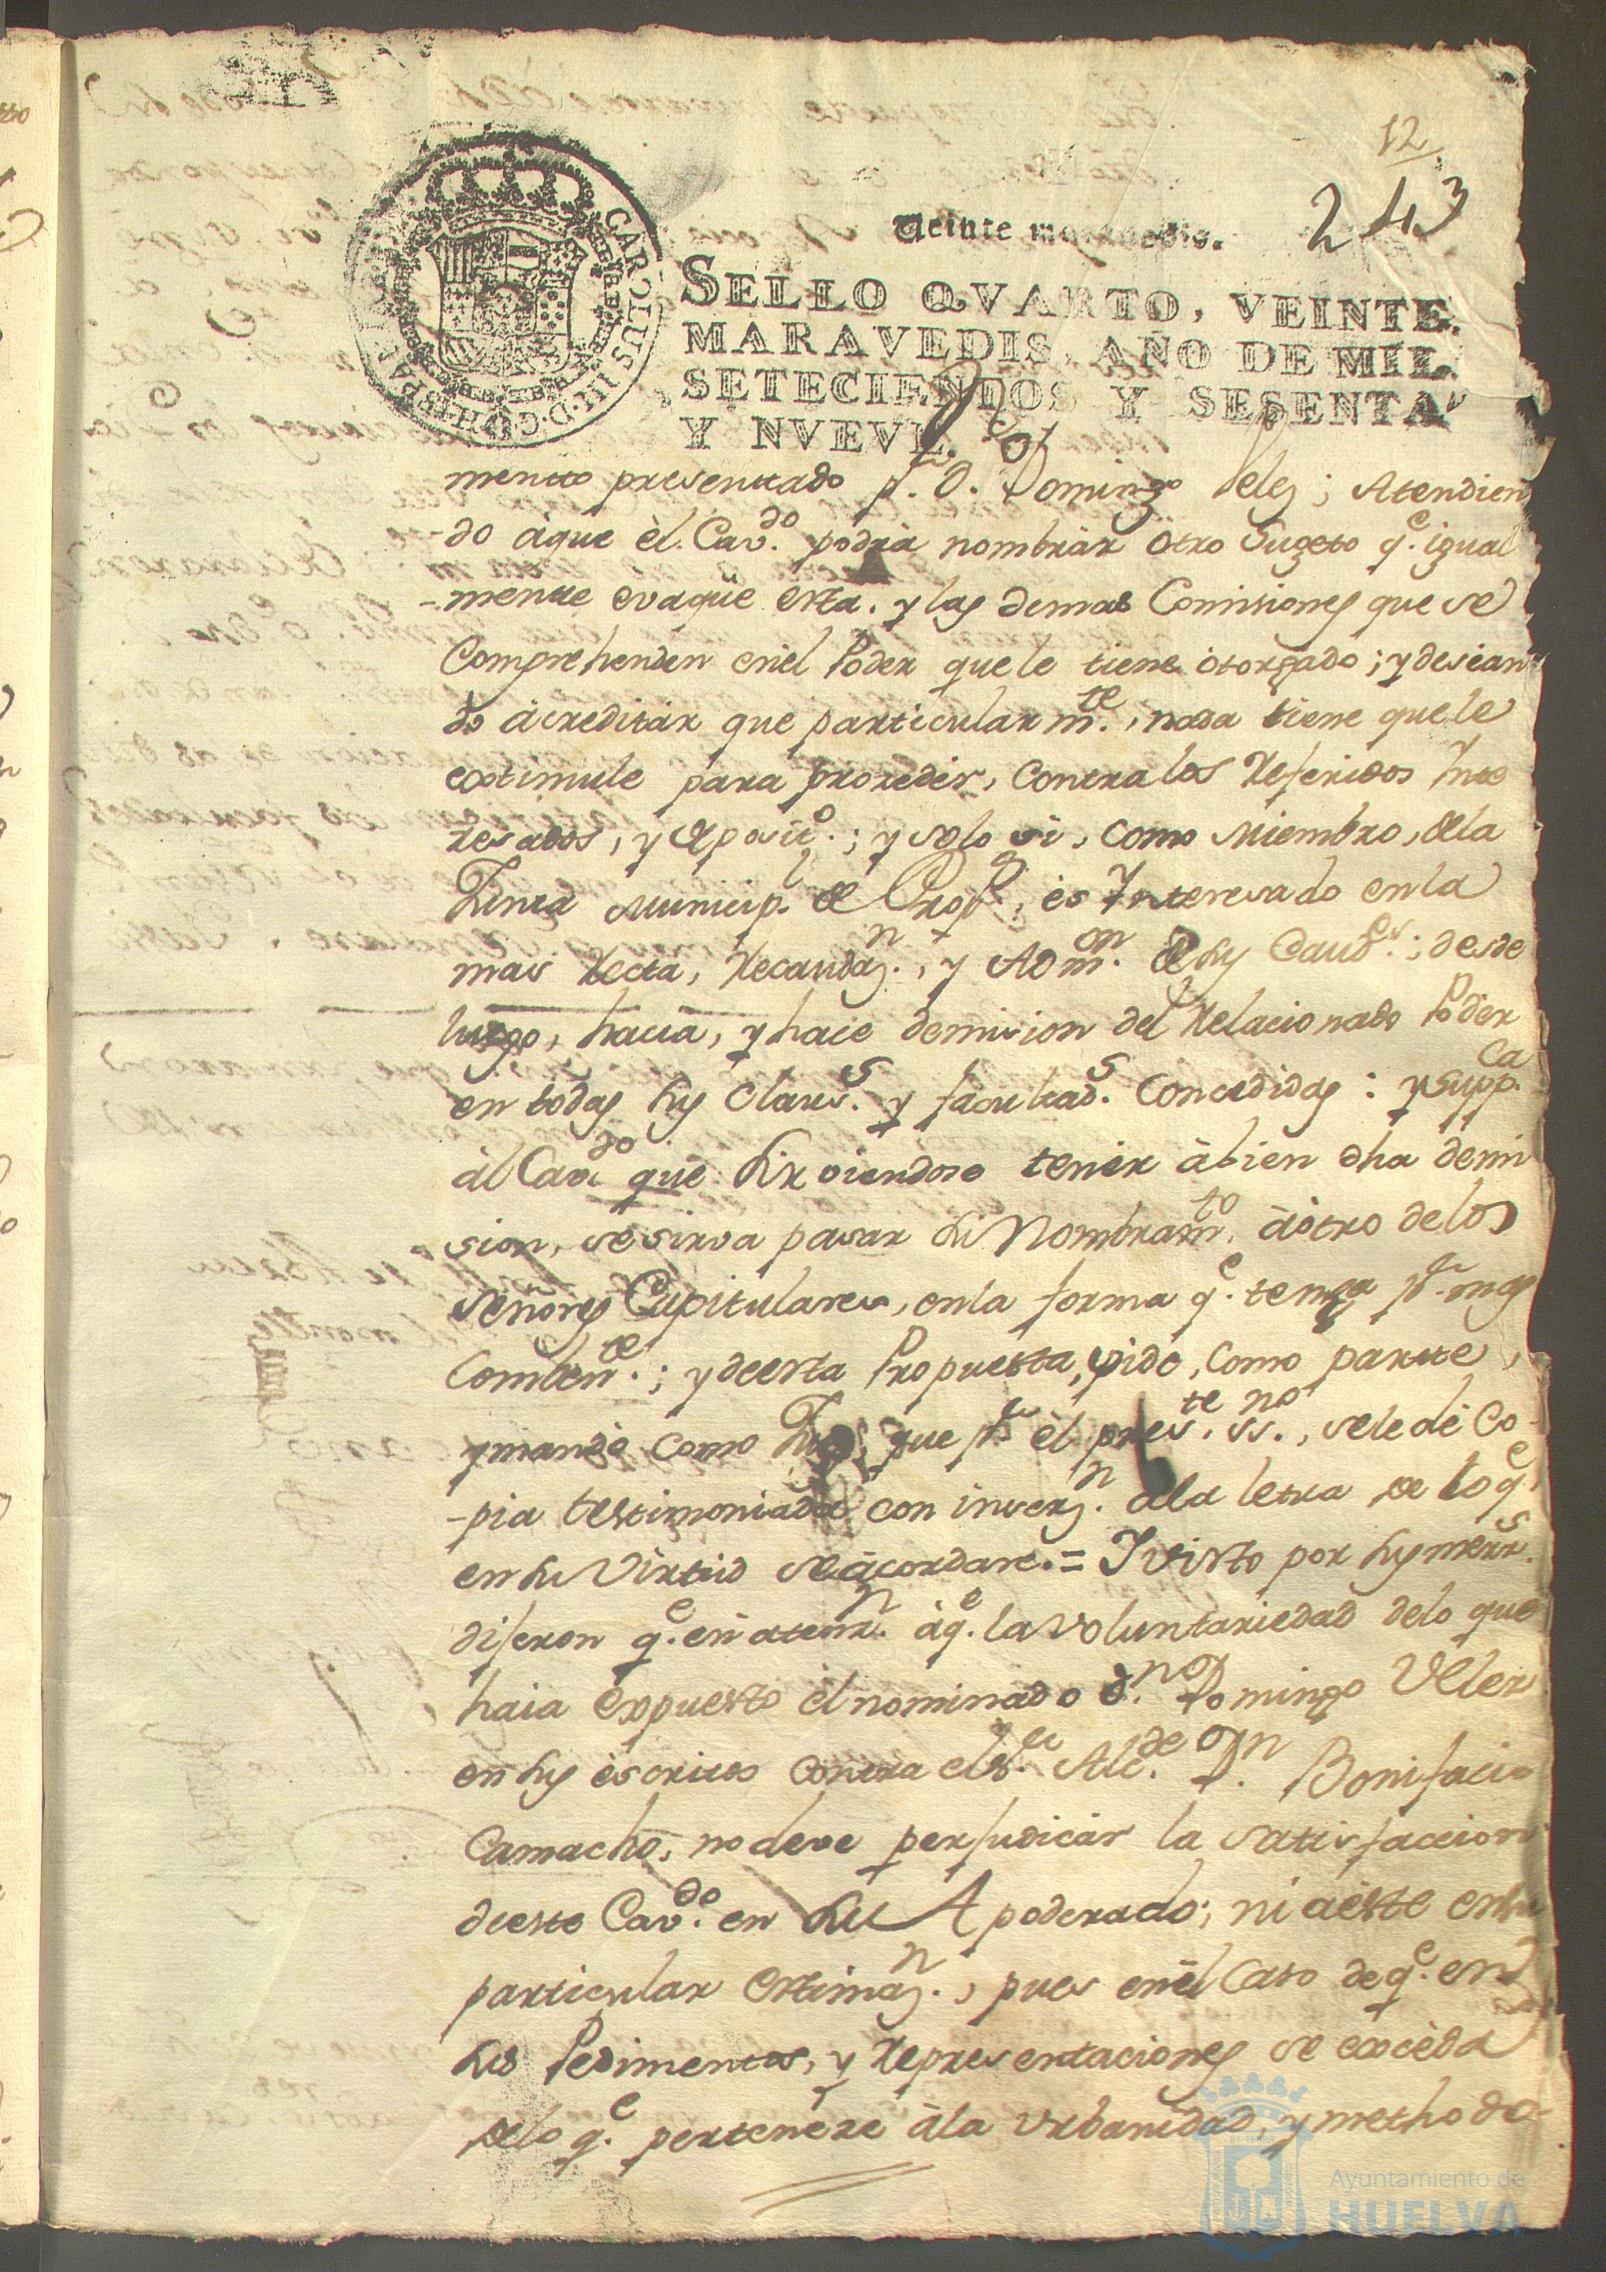 12
243
Veinte maravedis.
SELLO QVARTO, VEINTE
MARAVEDIS, AÑO DE MIL
SETECIENTOS Y SESENTA
Y NVEVE.
CAROLUS III D G HISPAN
mento presentado pr. D. Domingo Velez; Atendien
-do àque èl Cavdo. podrà nombràr otro Sugeto qe. igual
-mente evaque esta, y las demas Comisiones que se
Comprehenden enèl Poder que le tiene otorgado; y desean
do àcreditàr que particularmte., nada tiene que le
extimule para proceder, contra los Referidos Inte
resados, y Deposito.; y solo si, como Miembro, dela
Junta Municipl. de Propos., ès Interesado en la
mas recta, Recaudazn., y Admon. de sus Caudes.; desde
luego, hacia, y hace demision del Relacionado Poder
en todas sus Claus. y facultads. concedidas: y suppca.
àl Cavdo. que sirviendose tenèr àbien dha demi
sion, se sirva pasar su Nombramto. àotro de los
señores Capitulares, en la forma qe. tenga pr. mas
Combente.; y de esta Propuesta, pide, como parte,
y manda como Juez, que pr. èl preste. ssno., sele dè Co-
-pia testimoniada con inserzn. àla letra de lo qe.
en su Virtud se àcordare. = I visto por sus mrds.
dijeron qe. en atenzn. àqe. la voluntariedad delo que
haia expuesto èl nominado dn. Domingo Velez
en sus èscritos contra el sr. Alcde. Dn. Bonifacio
Camacho, no deve perjudicàr la satisfaccion
de este Cavdo. en su Apoderado; ni àèste en su
particular estimazn., pues enèl caso de qe. en
sus Pedimentos, y Representaciones se exceda
delo qe. pertenece àla urbanidad, y methodo
Ayuntamiento de
HUELVA